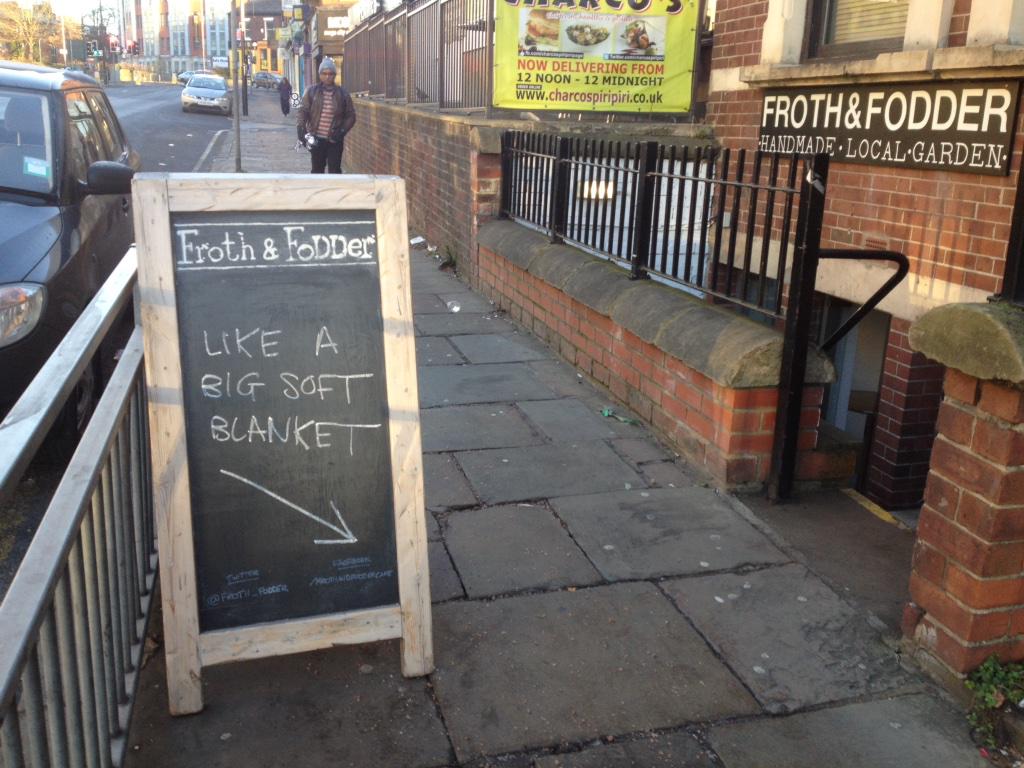 CHARCO'S
NOW DELIVERING FROM
12 NOON - 12 MIDNIGHT
www.charcospiripiri.co.uk
FROTH&FODDER
HANDMADE·LOCAL·GARDEN·
Froth & FoDDer
LIKE A
BIG SOFT
BLANKET
TWITTER
@FROTH_FODDER
FACEBOOK
/FROTHANDFODDERCAFE